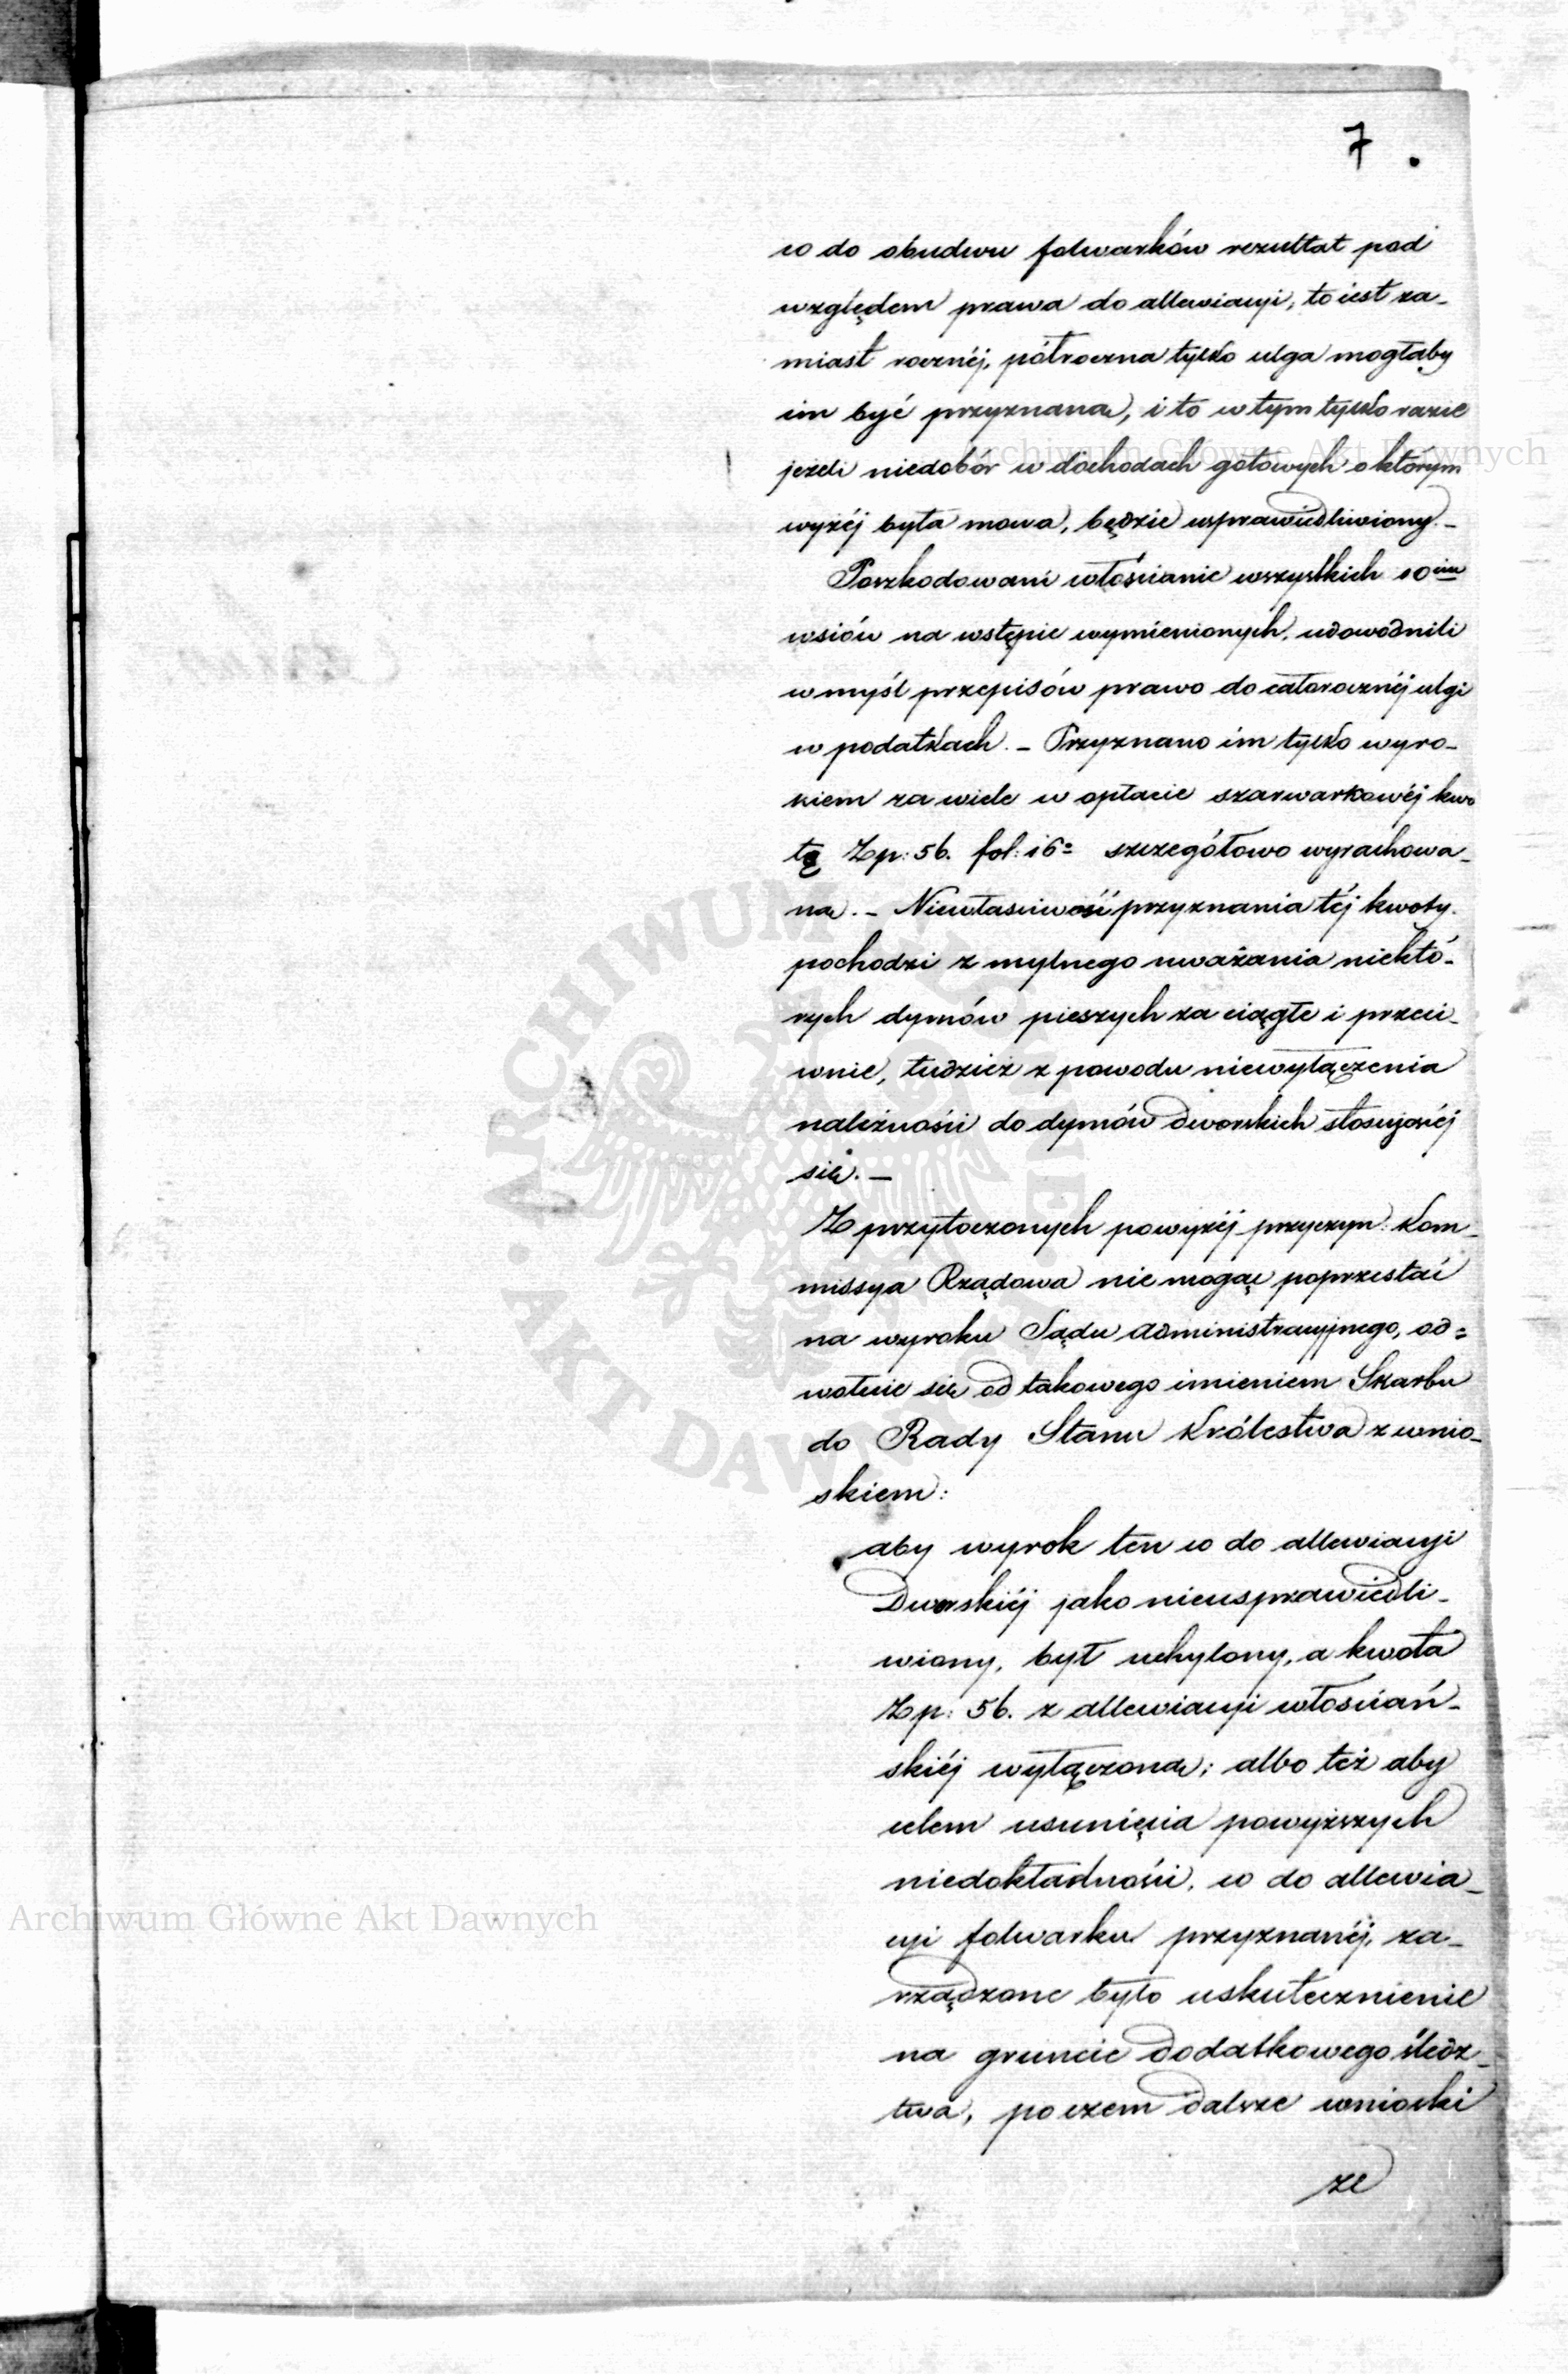 7.
co do obudwu folwarków rezultat pod
względem prawa do allewiacyi, to iest za-
miast rocznéj, półroczna tylko ulga mogłaby
im być przyznana, i to w tym tylko razie
jeżeli niedobór w dochodach gotowych o którym
wyżéj była mowa, będzie usprawiedliwiony. –
Poszkodowani włościanie wszystkich 10ciu
wsiów na wstępie wymienionych, udowodnili
w myśl przepisów prawo do całorocznéj ulgi
w podatkach. – Przyznano im tylko wyro-
kiem za wiele w opłacie szarwarkowéj kwo
tę Zp: 56. fol: 16= szczegółowo wyrachowa-
na. – Niewłaściwość przyznania téj kwoty
pochodzi z mylnego uważania niektó-
rych dymów pieszych za ciągłe i przeci-
wnie, tudzież z powodu niewyłączenia
należności do dymów dworskich stosującéj
się. –
Z przytoczonych powyżéj przyczyn Kom-
missya Rządowa nie mogąc poprzestać
na wyroku Sądu Administracyjnego, od=
wołuie się od takowego imieniem Skarbu
do Rady Stanu Królestwa z wnio-
skiem:
aby wyrok ten co do allewiacyi
Dworskiéj jako nieusprawiedli-
wiony, był uchylony, a kwota
Zp: 56. z allewiacyi włościań-
skiéj wyłączona; albo też aby
celem usunięcia powyższych
niedokładności, co do allewia-
cyi folwarku przyznanéj, za-
rządzone było uskutecznienie
na gruncie dodatkowego śledz-
twa, poczem dalsze wnioski
ze
Archiwum Główne Akt Dawnych
Archiwum Główne Akt Dawnych
ARCHIWUM GŁÓWNE AKT DAWNYCH